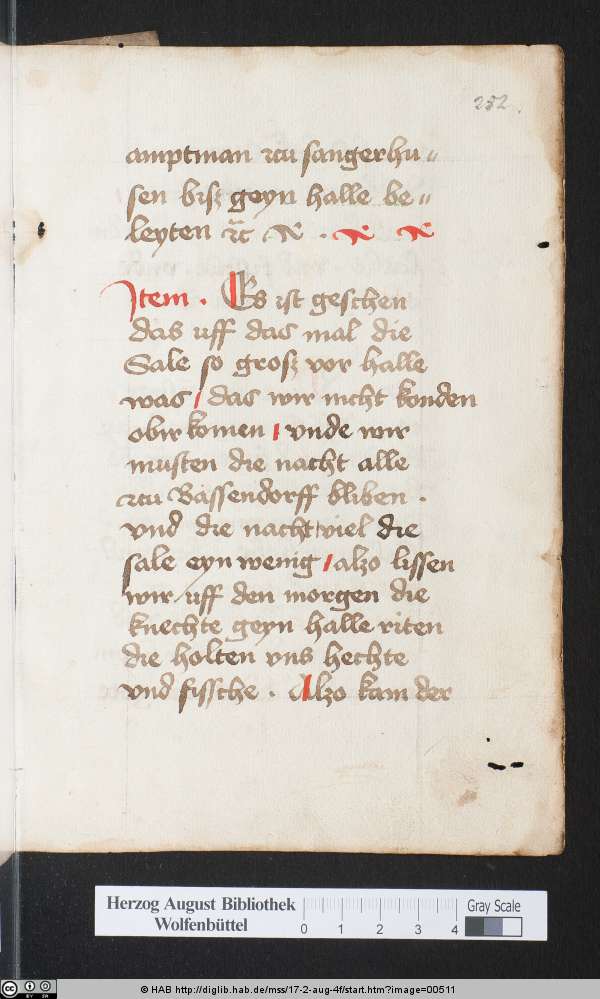 252
amptman zcu sangerhu〃
sen bisz geyn halle be〃
leyten zc̃
Item . Es ist geschen
das uff das mal die
Sale so grosz vor halle
was / das wir nicht konden
obir komen / vnde wir
musten die nacht alle
zcu Bässendorff bliben .
vnd die nacht viel die
sale eyn wenig / alzo lissen
wir uff den morgen die
knechte geyn halle riten
die holten vns hechte
vnd fissche . Alzo kam der
Herzog August Bibliothek
Wolfenbüttel
0 1 2 3 4
Gray Scale
© HAB http://diglib.hab.de/mss/17-2-aug-4f/start.htm?image=00511